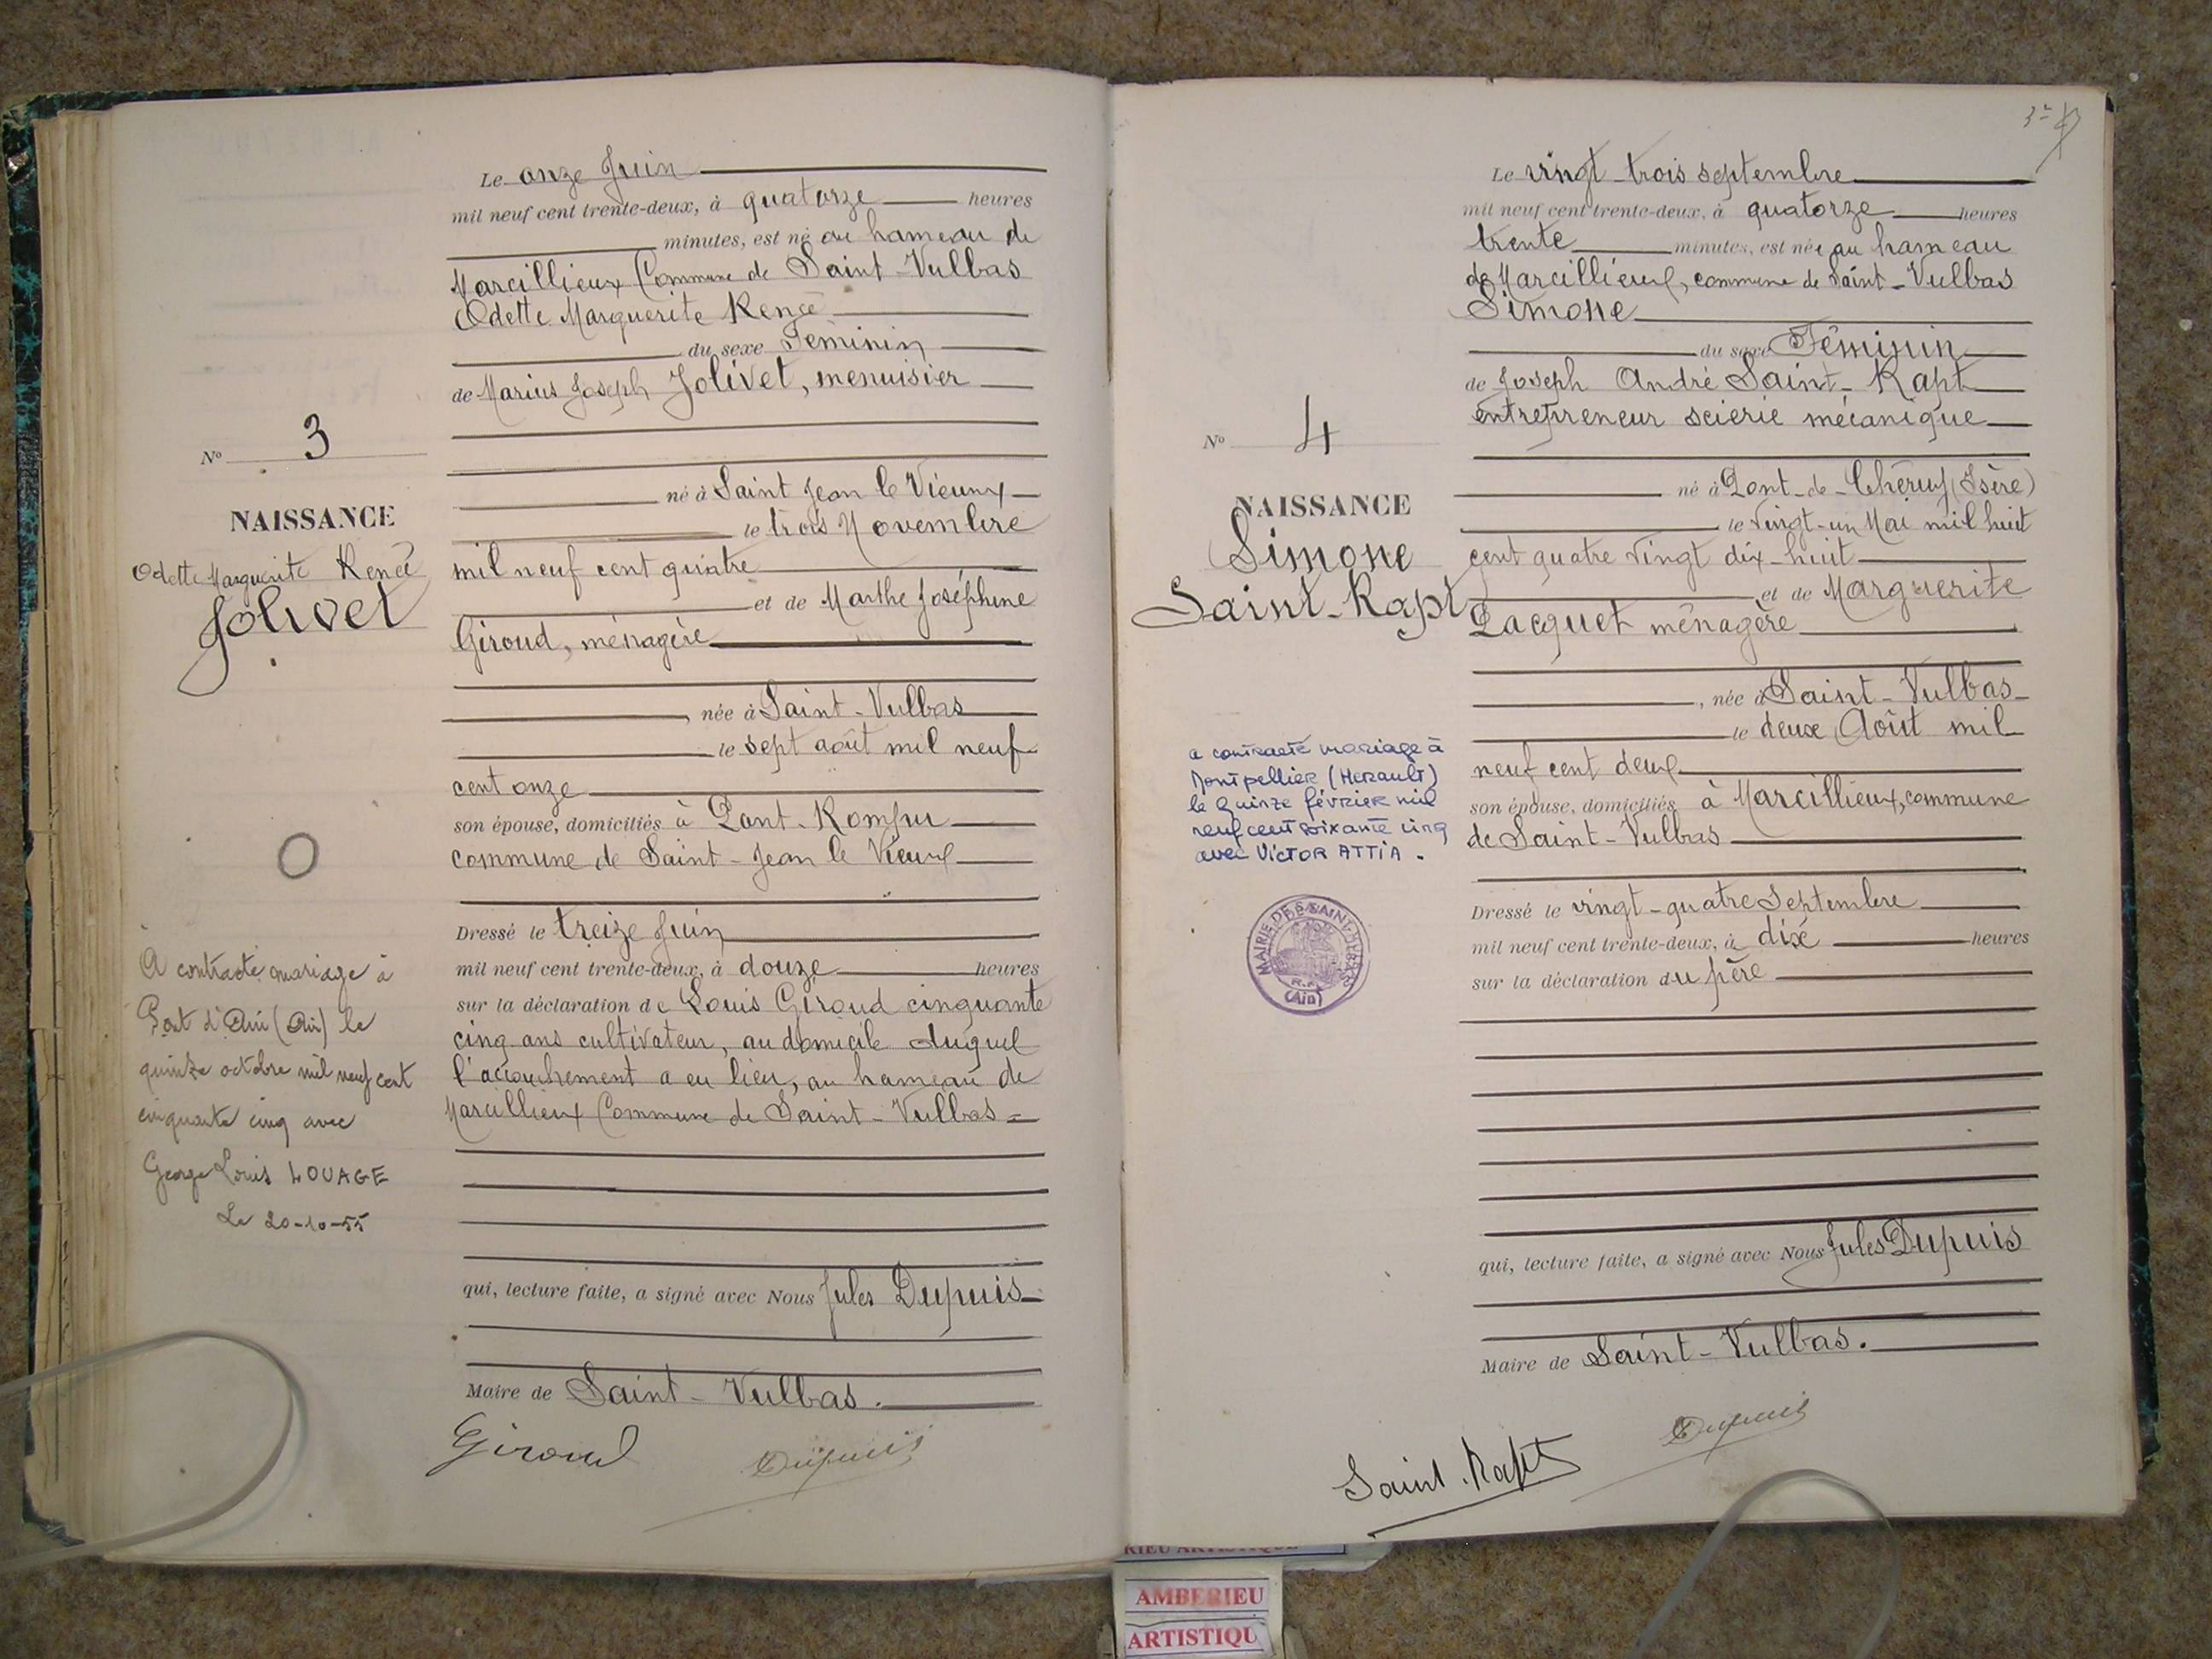 Le onze Juin
mil neuf cent trente-deux, à quatorze heures
minutes, est né au hameau de
Marcillieux Commune de Saint-Vulbas
Odette Marguerite Renée
du sexe Féminin
de Marius Joseph Jolivet, menuisier
né à Saint Jean le Vieux
le trois Novembre
mil neuf cent quatre
et de Marthe Joséphine
Giroud, ménagère
, née à Saint-Vulbas
le sept août mil neuf
cent onze
son épouse, domiciliés à Pont-Rompu
commune de Saint-Jean le Vieux
Dressé le treize Juin
mil neuf cent trente-deux, à douze heures
sur la déclaration de Louis Giroud cinquante
cinq ans cultivateur, au domicile duquel
l'accouchement a eu lieu, au hameau de
Marcillieux Commune de Saint-Vulbas =
qui, lecture faite, a signé avec Nous Jules Dupuis
Maire de Saint-Vulbas.
Giroud Dupuis
N° 3
NAISSANCE
Odette Marguerite Renée
Jolivet
A contracté mariage à
Pont d'Ain (Ain) le
quinze octobre mil neuf cent
cinquante cinq avec
George Louis LOUAGE
Le 20-10-55
Le vingt-trois septembre
mil neuf cent trente-deux, à quatorze heures
trente minutes, est née au hameau
de Marcillieux, commune de Saint-Vulbas
Simone
du sexe Féminin
de Joseph André Saint-Rapt
entrepreneur scierie mécanique
né à Pont-de-Chéruy (Isère)
le vingt-un Mai mil huit
cent quatre vingt dix-huit
et de Marguerite
Pacquet ménagère
, née à Saint-Vulbas
le deux Août mil
neuf cent deux
son épouse, domiciliés à Marcillieux, commune
de Saint-Vulbas
Dressé le vingt-quatre Septembre
mil neuf cent trente-deux, à dix heures
sur la déclaration du père
qui, lecture faite, a signé avec Nous Jules Dupuis
Maire de Saint-Vulbas.
Saint-Rapt Dupuis
N° 4
NAISSANCE
Simone
Saint-Rapt
a contracté mariage à
Montpellier (Herault)
le quinze février mil
neuf cent soixante cinq
avec VICTOR ATTIA.
MAIRIE DE SAINT-VULBAS
R.F.
(Ain)
AMBERIEU
ARTISTIQU